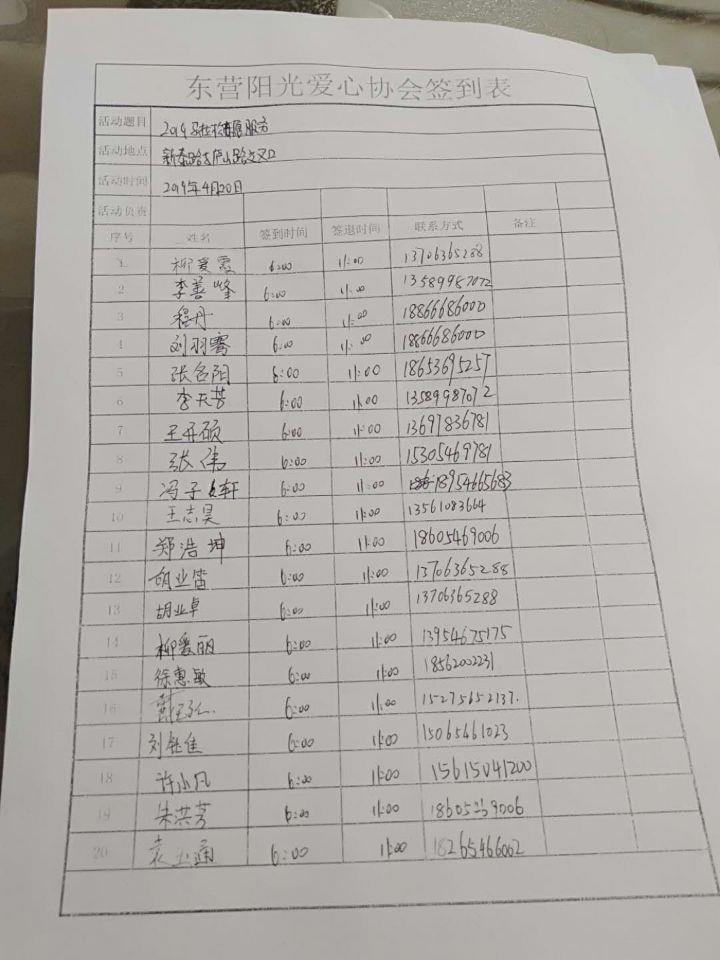 东营阳光爱心协会签到表
活动题目 2019马拉松志愿服务
活动地点 新泰路与庐山路交叉口
活动时间 2019年4月20日
活动负责
序号 姓名 签到时间 签退时间 联系方式 备注
1 柳爱霞 6:00 11:00 13706365288
2 李善峰 6:00 11:00 13589987072
3 程丹 6:00 11:00 18866686000
4 刘羽骞 6:00 11:00 18866686000
5 张洺阳 6:00 11:00 18653695257
6 李天芳 6:00 11:00 13589987072
7 王丹硕 6:00 11:00 13697836781
8 张伟 6:00 11:00 15305469781
9 冯子轩 6:00 11:00 18954665683
10 王志昊 6:00 11:00 13561083664
11 郑浩坤 6:00 11:00 18605469006
12 胡业笛 6:00 11:00 13706365288
13 胡业卓 6:00 11:00 13706365288
14 柳爱丽 6:00 11:00 13954675175
15 徐惠敏 6:00 11:00 18562002231
16 6:00 11:00 15275652137.
17 刘钰佳 6:00 11:00 15065461023
18 许小凡 6:00 11:00 15615041200
19 朱洪芳 6:00 11:00
20 袁玉通 6:00 11:00 18265466002